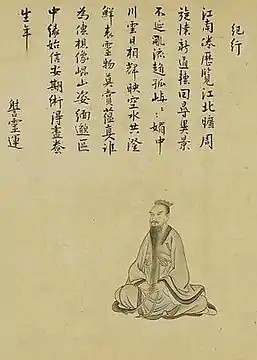 紀行
江南倦歷覽江北曠周
旋懷新道轉迴尋異景
不延亂流趨孤嶼〻〻媚中
川雲日相輝映空水共澄
鮮表靈物莫賞蘊真誰
為傳想像崐山姿緬邈區
中緣始信安期術得盡養
生年
謝靈運